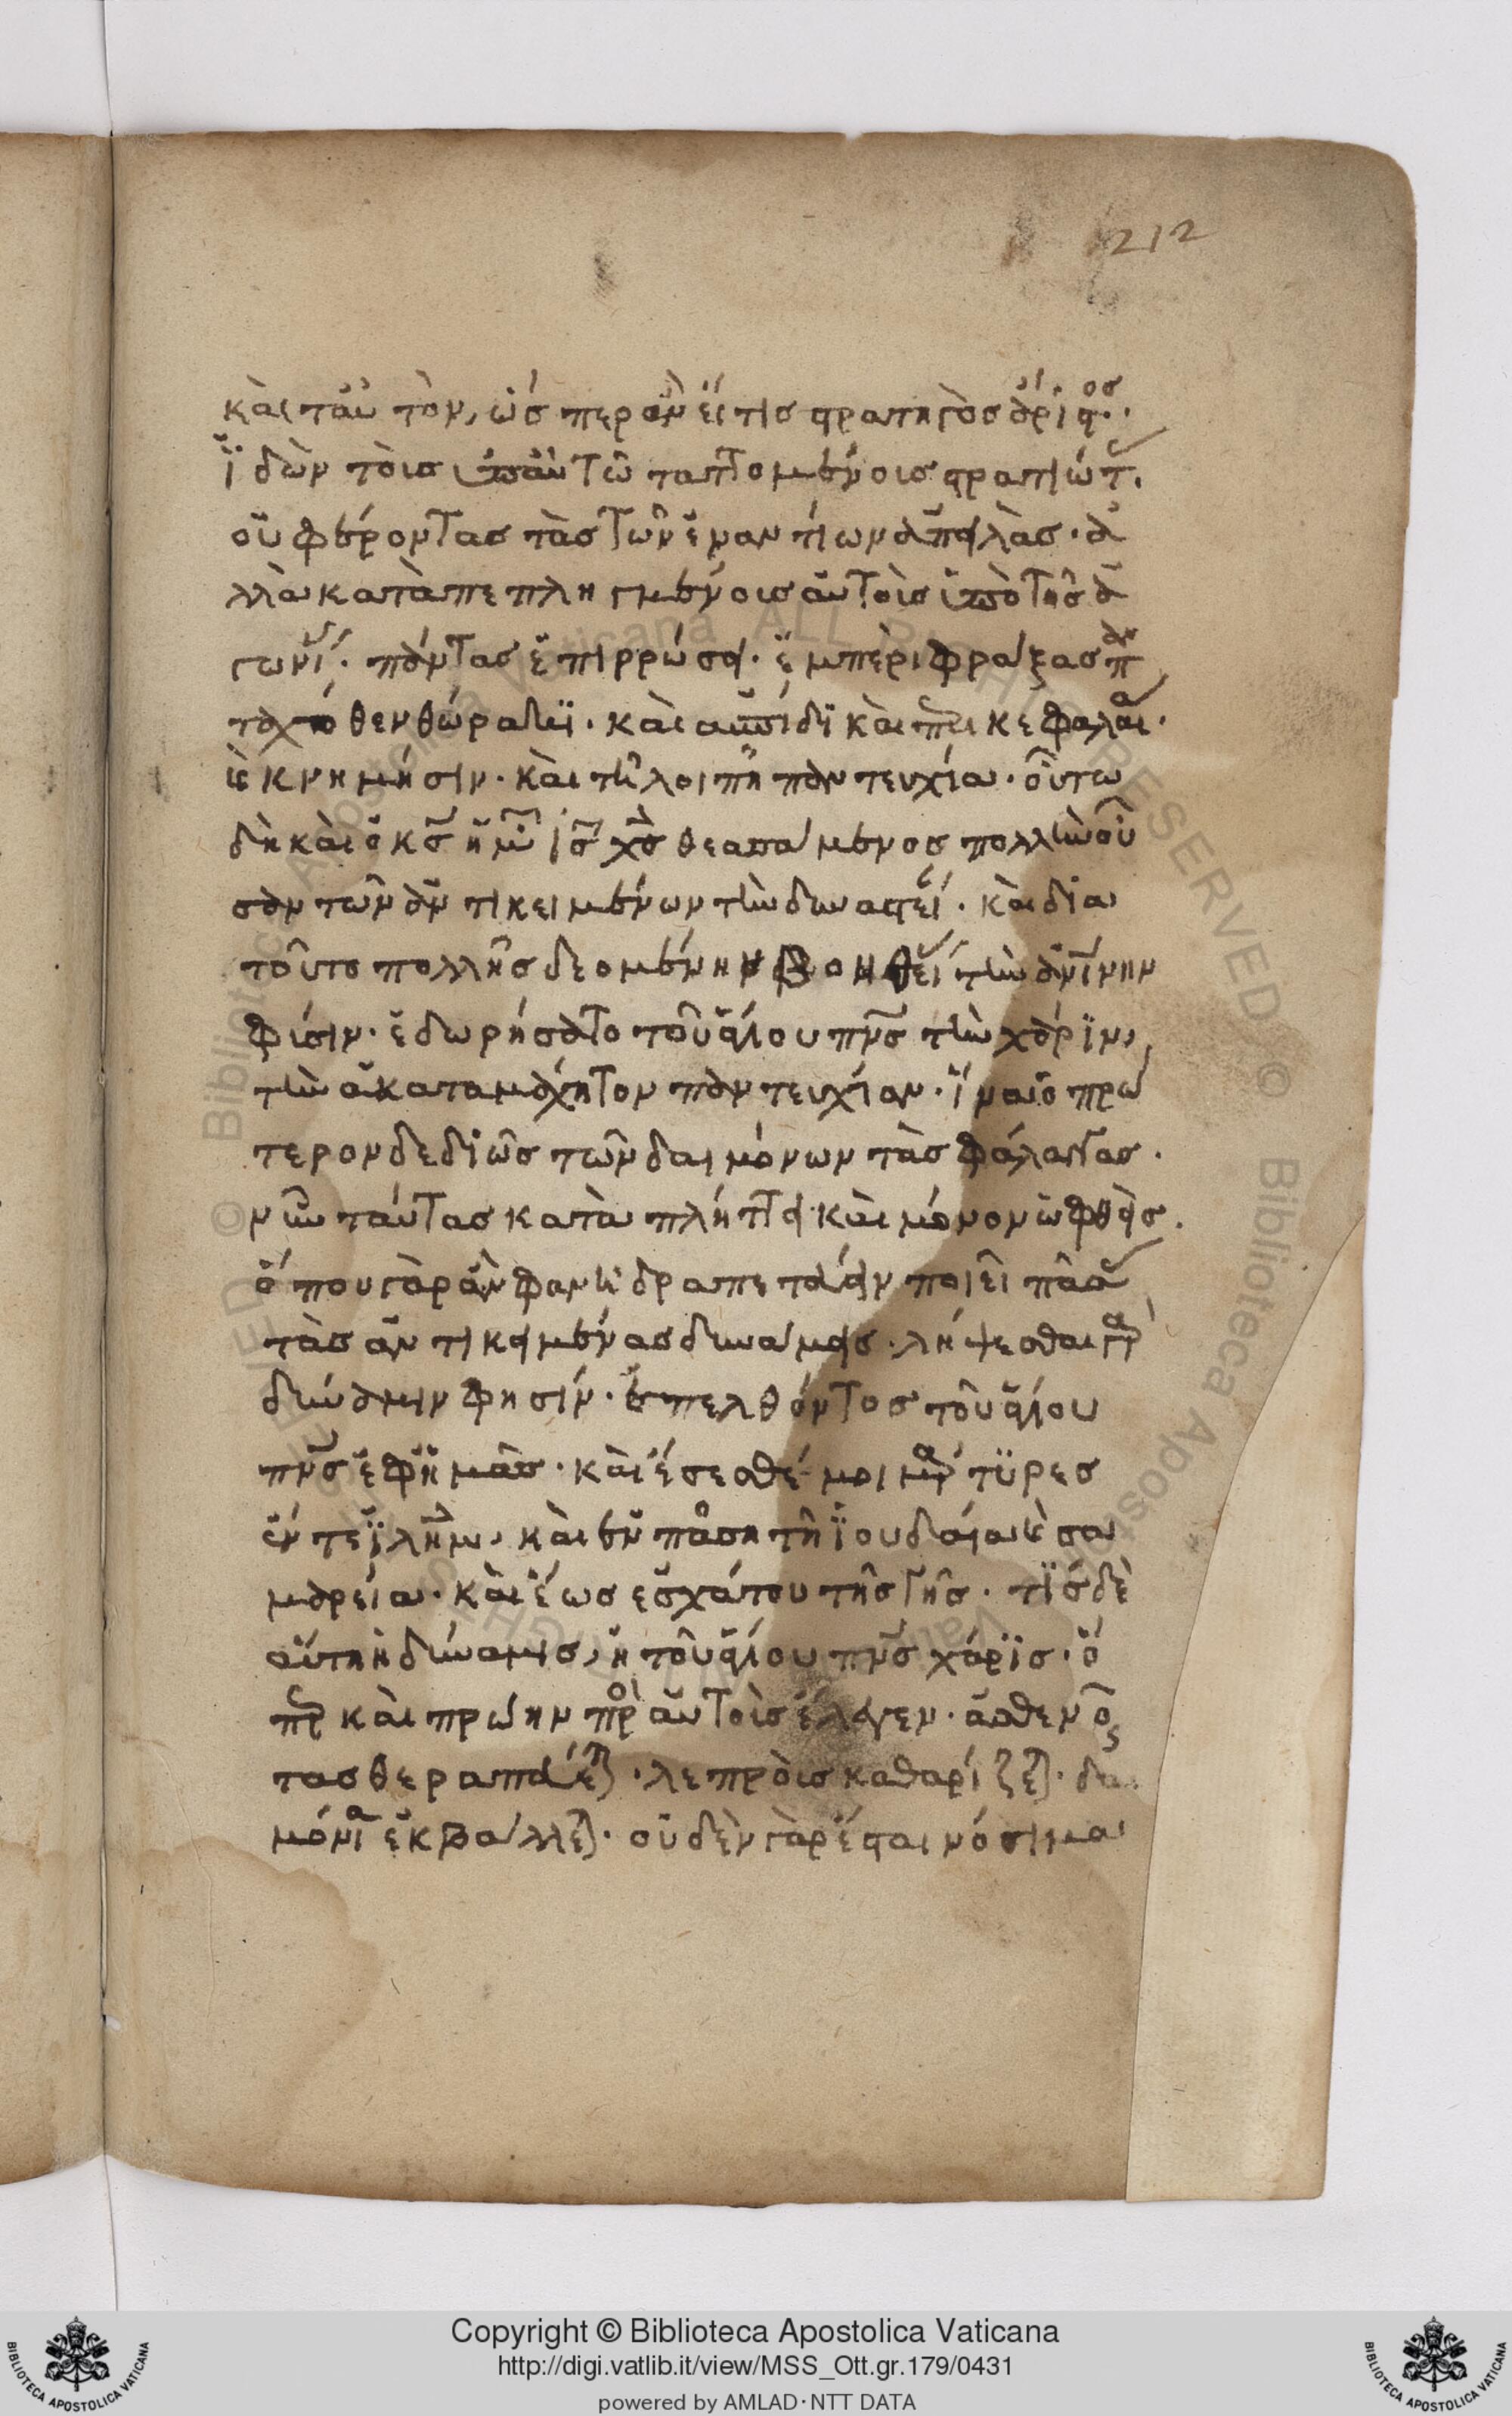 212
καὶ ταῦτον, ὥσπερ ἂν εἴ τις στρατηγὸς ἄριστος.
ἰδὼν τοῖς ὑπ' αὐτῶ ταττομένοις στρατιώτ.
οὐ φέροντας τὰς τῶν ἐναντίων ἀπειλὰς. ἀ
λλὰ καταπεπληγμένοις αὐτοῖς ὑπὸ τῆς ἀ
γωνί. πάντας ἐπιρρώσει. ἐμπεριφράξας ἁπ
ταχόθεν θώρακι. καὶ ἀσπίδι καὶ περικεφαλαί.
καὶ κνημῆσιν. καὶ τῆ λοιπῆ παντευχία. οὕτω
δὴ καὶ ὁ κς ἡμῶν ις χς θεασάμενος πολλὴν οὖ
σαν τῶν ἀντικειμένων τὴν δυναστεί. καὶ διὰ
τοῦτο πολλῆς δεομένην βοηθεί τὴν ἀνίνην
φύσιν. ἐδωρήσατο τοῦ ἁγίου πνς τὴν χάριν,
τὴν ἀκαταμάχητον παντευχίαν. ἵνα ὁ πρώ
τερον δεδιὼς τῶν δαιμόνων τὰς φάλαγγας.
νῦν ταύτας καταπλήττει καὶ μόνον ὀφθεὶς.
ὅπου γὰρ ἂν φανῆ δραπετεύειν ποιεῖ πάσ
τὰς ἀντικειμένας δυνάμεις. λήψεσθαι γὰρ
δύναμιν φησίν. ἐπελθόντος τοῦ ἁγίου
πνς ἐφ' ἡμὰς. καὶ ἔσεσθέ μοι μάρτυρες
ἔν τε ἱλημ, καὶ ἐν πάση τῆ ἰουδαία καὶ σα
μαρεία. καὶ ἕως ἐσχάτου τῆς γῆς. τίς δὲ
αὕτη ἡ δύναμις, ἡ τοῦ ἁγίου πνς χάρις. ὅ
περ καὶ πρώην παρ' αὐτοῖς ἔλεγεν. ἀσθενοῦ
τας θεραπεύετε. λεπροὺς καθαρίζετε. δαι
μόνια ἐκβάλλετε. οὐδὲν γὰρ ἔσται νόσημα
Copyright © Biblioteca Apostolica Vaticana
http://digi.vatlib.it/view/MSS_Ott.gr.179/0431
powered by AMLAD · NTT DATA
BIBLIOTECA APOSTOLICA VATICANA
BIBLIOTECA APOSTOLICA VATICANA